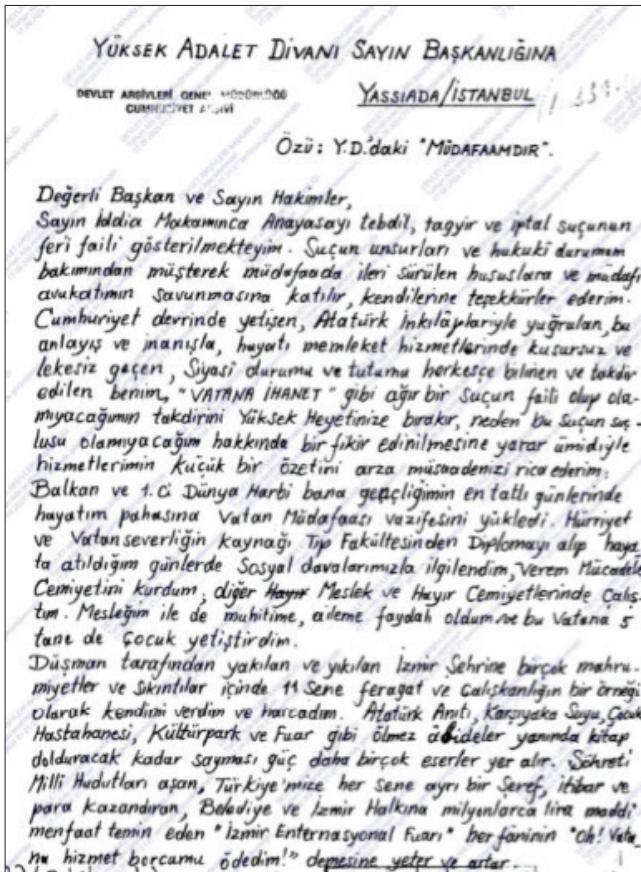 YÜKSEK ADALET DİVANI SAYIN BAŞKANLIĞINA
DEVLET ARŞİVLERİ GENEL MÜDÜRLÜĞÜ
CUMHURİYET ARŞİVİ
YASSIADA/İSTANBUL
Özü: Y.D.'daki "MÜDAFAAMDIR".
Değerli Başkan ve Sayın Hakimler,
Sayın İddia Makamınca Anayasayı tebdil, tagyir ve iptal suçunun
feri faili gösterilmekteyim. Suçun unsurları ve hukuki durumum
bakımından müşterek müdafaada ileri sürülen hususlara ve müdafi
avukatımın savunmasına katılır, kendilerine teşekkürler ederim.
Cumhuriyet devrinde yetişen, Atatürk İnkılâplariyle yuğrulan, bu
anlayış ve inanışla, hayatı memleket hizmetlerinde kusursuz ve
lekesiz geçen, Siyasi durumu ve tutumu herkesçe bilinen ve takdir
edilen benim, "VATANA İHANET" gibi ağır bir suçun faili olup ola-
mıyacağımın takdirini Yüksek Heyetinize bırakır, neden bu Suçun suç-
lusu olamıyacağım hakkında bir fikir edinilmesine yarar ümidiyle
hizmetlerimin Küçük bir özetini arza müsaadenizi rica ederim.
Balkan ve 1.Ci Dünya Harbi bana gençliğimin en tatlı günlerinde
hayatım pahasına Vatan Müdafaası vazifesini yükledi. Hürriyet
ve Vatanseverliğin kaynağı Tıp Fakültesinden Diplomayı alıp haya-
ta atıldığım günlerde Sosyal davalarımızla ilgilendim, Verem Mücadele
Cemiyetini kurdum, diğer Hayır Meslek ve Hayır Cemiyetlerinde Çalış-
tım. Mesleğim ile de muhitime, aileme faydalı oldum ve bu Vatana 5
tane de Çocuk yetiştirdim.
Düşman tarafından yakılan ve yıkılan İzmir Şehrine birçok mahru-
miyetler ve sıkıntılar içinde 11 Sene feragat ve Çalışkanlığın bir örneği
olarak kendimi verdim ve harcadım. Atatürk Anıtı, Karşıyaka Suyu, Çocuk
Hastahanesi, Kültürpark ve Fuar gibi ölmez âbideler yanında kitap
dolduracak kadar sayması güç daha birçok eserler yer alır. Şöhreti
Milli Hudutları aşan, Türkiye'mize her sene ayrı bir Şeref, itibar ve
para kazandıran, Belediye ve İzmir Halkına milyonlarca lira maddi
menfaat temin eden "İzmir Enternasyonal Fuarı" her faninin "Oh! Vata-
na hizmet borcumu ödedim!" demesine yeter ve artar.